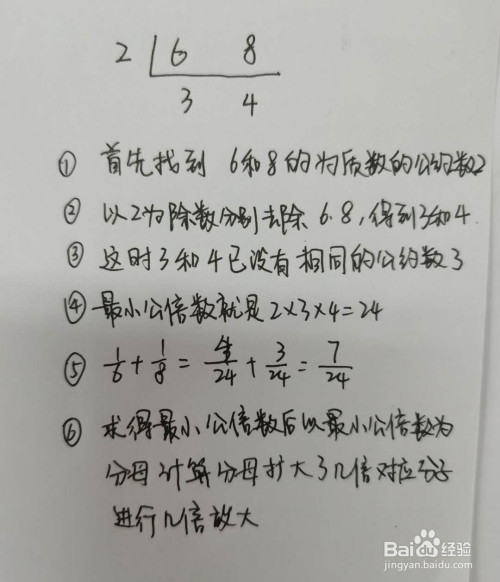 2 6 8
3 4
① 首先找到 6和8的为质数的公约数2
② 以2为除数分别去除 6.8,得到3和4.
③ 这时3和4已没有相同的公约数了
④ 最小公倍数就是2×3×4=24
⑤ 1/6 + 1/8 = 4/24 + 3/24 = 7/24
⑥ 求得最小公倍数后以最小公倍数为
分母计算分母扩大了几倍对应分子
进行几倍放大
Baidu经验
jingyan.baidu.com